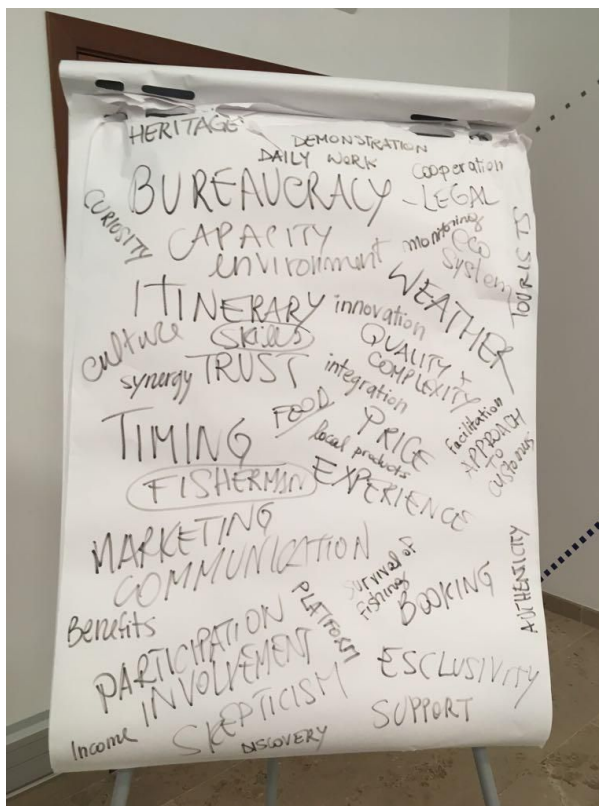 HERITAGE
DEMONSTRATION
DAILY WORK
cooperation
BUREAUCRACY
- LEGAL
CURIOSITY
CAPACITY
monitoring
eco
system
TOURISTS
environment
WEATHER
ITINERARY
innovation
culture
skills
QUALITY +
COMPLEXITY
synergy
TRUST
integration
FOOD
PRICE
local products
facilitation
APPROACH
TO
customers
TIMING
FISHERMAN
EXPERIENCE
MARKETING
COMMUNICATION
survival of
fishing
BOOKING
AUTHENTICITY
Benefits
PLATFORM
PARTICIPATION
INVOLVEMENT
ESCLUSIVITY
SKEPTICISM
SUPPORT
Income
DISCOVERY